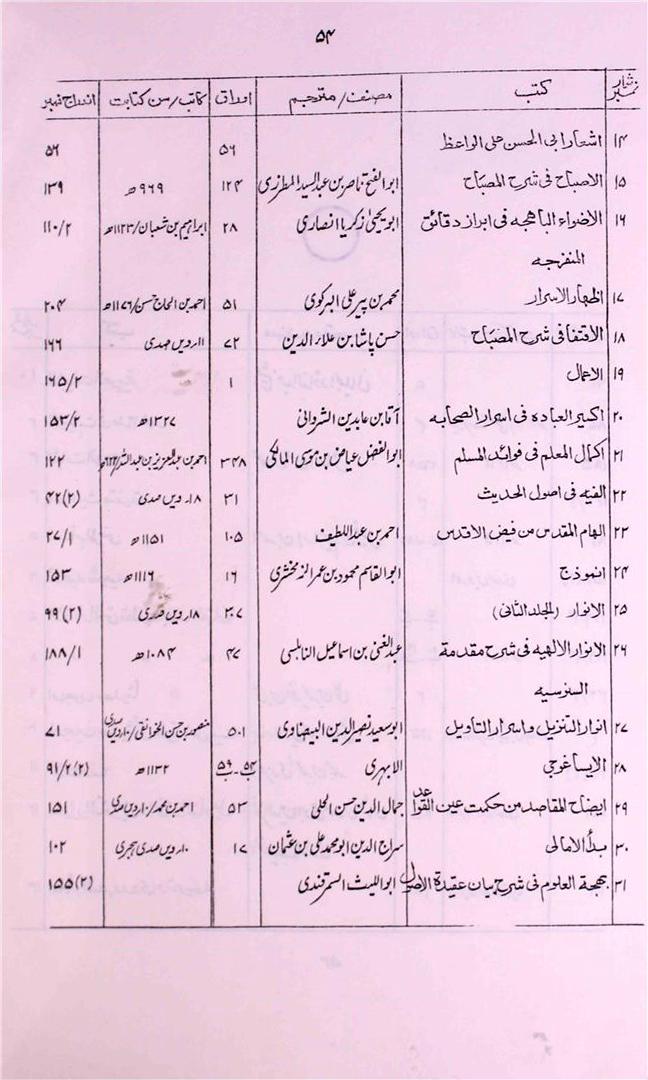 ۵۴
نمبر شمار کتب مصنف/مترجم اوراق کاتب/سن کتابت اندراج نمبر
۱۴ اشعار ابی الحسن علی الواعظ ۵۶ ۵۶
۱۵ الاصباح فی شرح المصباح ابوالفتح ناصر بن عبدالسید المطرزی ۱۲۴ ۹۶۹ھ ۱۳۹
۱۶ الاضواء الباھجہ فی ابراز دقائق ابویحییٰ زکریا انصاری ۲۸ ابراہیم بن شعبان/۱۱۲۳ھ ۱۱۰/۲
المنفرجہ
۱۷ اظہار الاسرار محمد بن پیر علی البرکوی ۵۱ احمد بن الحاج حسن/۱۱۷۶ھ ۲۰۴
۱۸ الافتفا فی شرح المصباح حسن پاشا بن علاء الدین ۷۲ ۱۱ویں صدی ۱۶۶
۱۹ الاعمال ۱ ۱۶۵/۲
۲۰ اکسیر العبادہ فی اسرار الصحابہ آقا بن عابدین الشروانی ۱۳۲۷ھ ۱۵۳/۲
۲۱ اکمال المعلم فی فوائد المسلم ابوالفضل عیاض بن موسی المالکی ۳۴۸ احمد بن عبدالعزیز بن عبداللہ ۱۲۲
۲۲ الفیہ فی اصول الحدیث ۳۱ ۱۸ویں صدی ۴۲(۲)
۲۳ الہام المقدس من فیض الاقدس احمد بن عبداللطیف ۱۰۵ ۱۱۵۱ھ ۲۷/۱
۲۴ انموذج ابوالقاسم محمود بن عمر الزمخشری ۱۶ ۱۱۱۶ھ ۱۵۳
۲۵ الانوار (المجلد الثانی) ۲۰۷ ۱۸ویں صدی ۹۹(۲)
۲۶ الانوار الالھیہ فی شرح مقدمۃ عبدالغنی بن اسماعیل النابلسی ۴۷ ۱۰۸۴ھ ۱۸۸/۱
السنوسیہ
۲۷ انوار التنزیل و اسرار التاویل ابوسعید نصیر الدین البیضاوی ۵۰۱ منصور بن حسن الخوانقی/۱۰ویں صدی ۷۱
۲۸ الایساغوجی الابہری ۵۴ب-۵۹ب ۱۱۳۲ھ ۹۱/۲(۲)
۲۹ ایضاح المقاصد من حکمت عین القواعد جمال الدین حسن الحلی ۵۳ احمد بن محمد/۱۰ویں صدی ۱۵۱
۳۰ بدأ الامالی سراج الدین ابومحمد علی بن عثمان ۱۷ ۱۰ویں صدی ہجری ۱۰۲
۳۱ بھجۃ العلوم فی شرح بیان عقیدۃ الاصول ابواللیث السمرقندی ۱۵۵(۲)